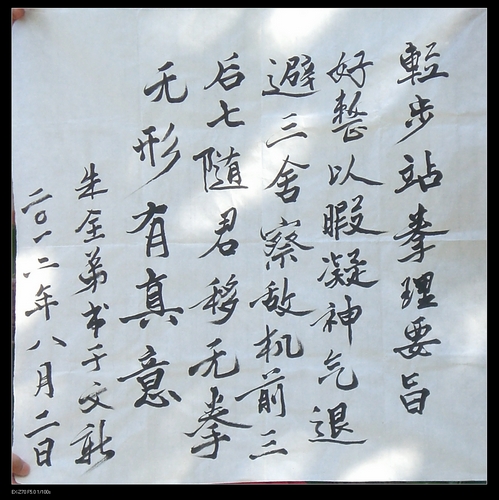 輕步站拳理要旨
好整以暇凝神气退
避三舍察敌机前三
后七随君移无拳
无形有真意
朱全弟书于文新
二〇一二年八月二日
EX-Z70 F5.0 1/100s